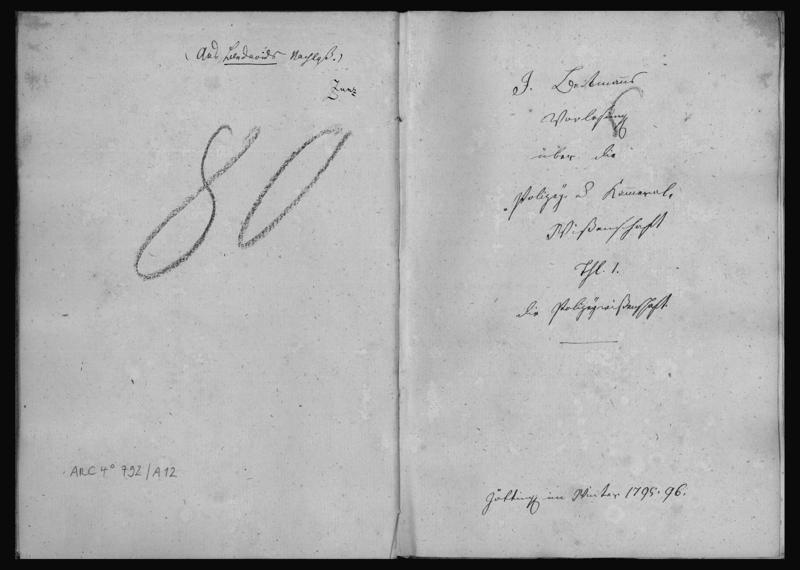 (Aus Bendavids Nachlaß.)
Zunz
80
ARC 4° 792/A12
J. Beckmanns
Vorlesung
über die
Polizey- & Kameral-
Wißenschaft
Thl. 1.
die Polizeywißenschaft
Götting im Winter 1795-96.